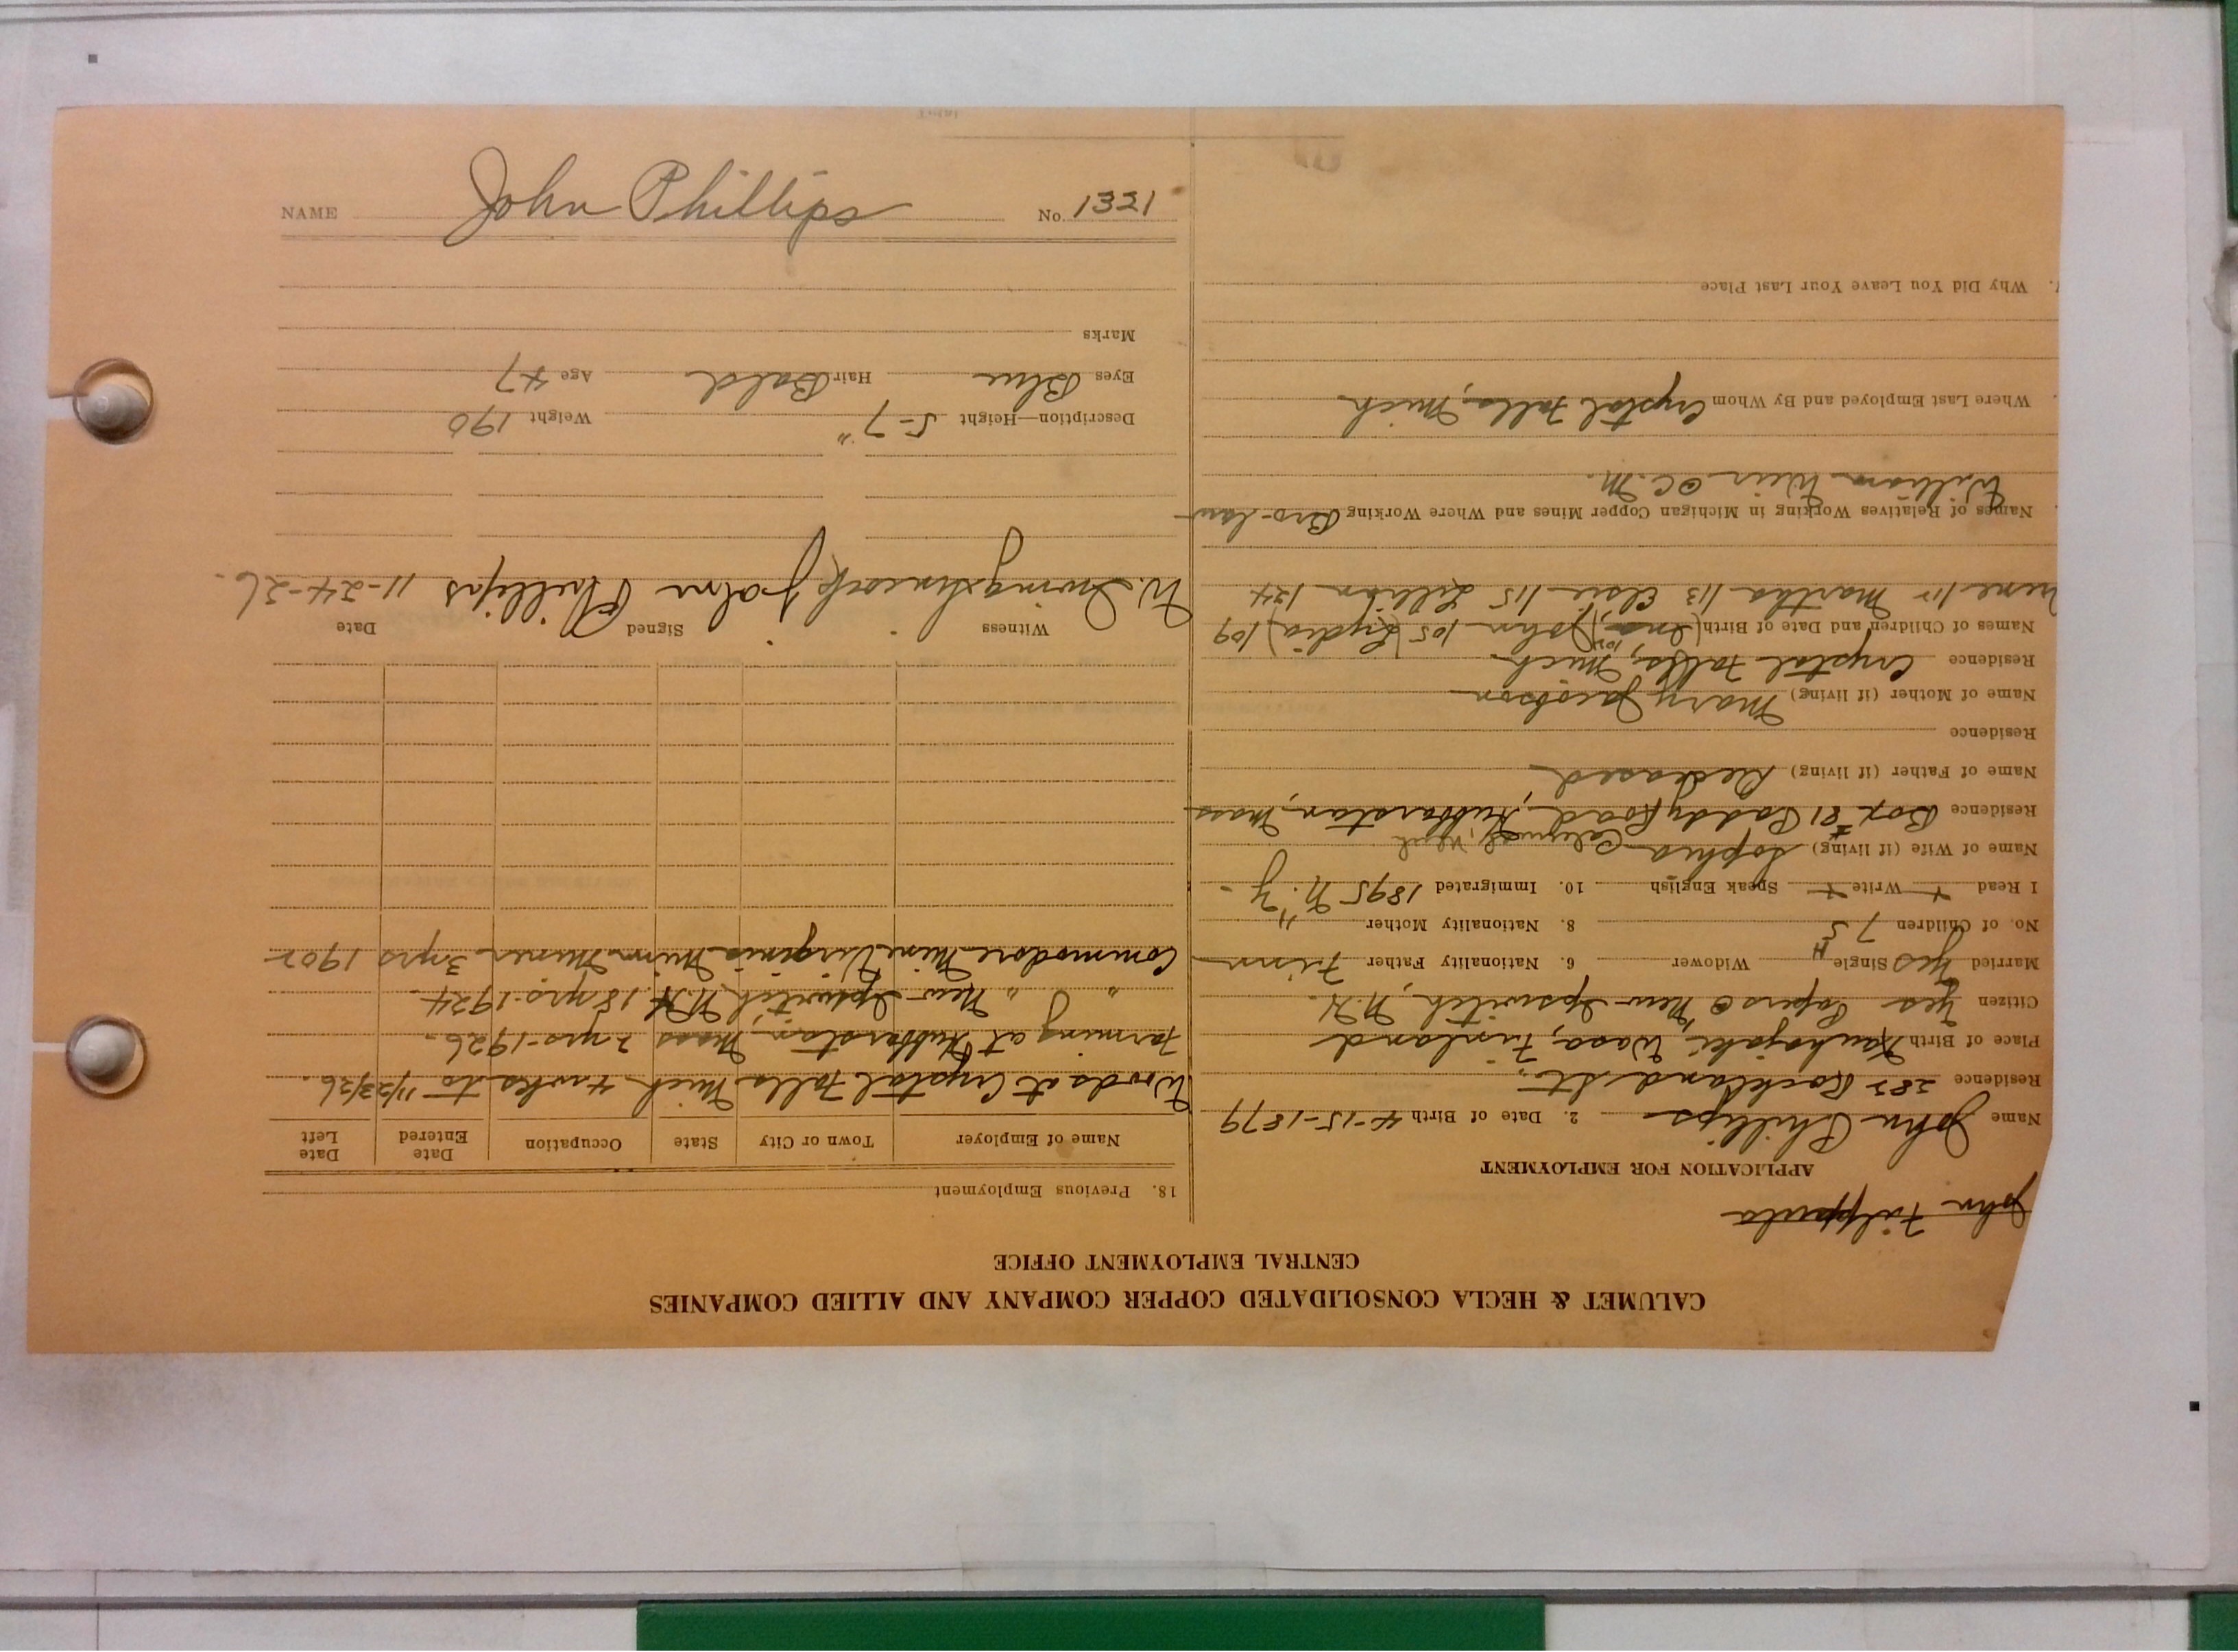 NAME John Phillips No. 1321
CALUMET & HECLA CONSOLIDATED COPPER COMPANY AND ALLIED COMPANIES
CENTRAL EMPLOYMENT OFFICE
John Filppula
APPLICATION FOR EMPLOYMENT
Name John Phillips 2. Date of Birth 4-15-1879
Residence 282 Rockland St.
Place of Birth Kauhajoki Wasa, Finland
Citizen Yes Papers @ New Ipswitch, N.H.
Married Yes Single Widower 6. Nationality Father Finn
No. of Children 7 5 8. Nationality Mother "
I Read + Write + Speak English 10. Immigrated 1895 N.Y.
Name of Wife (if living) Sophia Calumet, Mich
Residence Box #81 Paddy Road, Hubbarston, Mass
Name of Father (if living) Deceased
Residence
Name of Mother (if living) Mary Jacobson
Residence Crystal Falls, Mich.
Names of Children and Date of Birth (Ina, John 105 (Lydia) 109
Martha 113 Elsie 115 Lillian 124
Names of Relatives Working in Michigan Copper Mines and Where Working Bro-law
William Weir @ C.M.
Where Last Employed and By Whom Crystal Falls, Mich
Why Did You Leave Your Last Place
18. Previous Employment
Name of Employer Town or City State Occupation Date Entered Date Left
Woods at Crystal Falls Mich 4 wks to 11/23/26.
Farming at Hubbarston, Mass 2 yrs-1926.
" " New Ipswitch N.H. 18 yrs-1924
Commodore Mine Virginia Minn Miner 3 yrs 1902
Witness Signed Date
John Phillips 11-24-26.
Description—Height 5-7" Weight 190
Eyes Blue Hair Bald Age 47
Marks